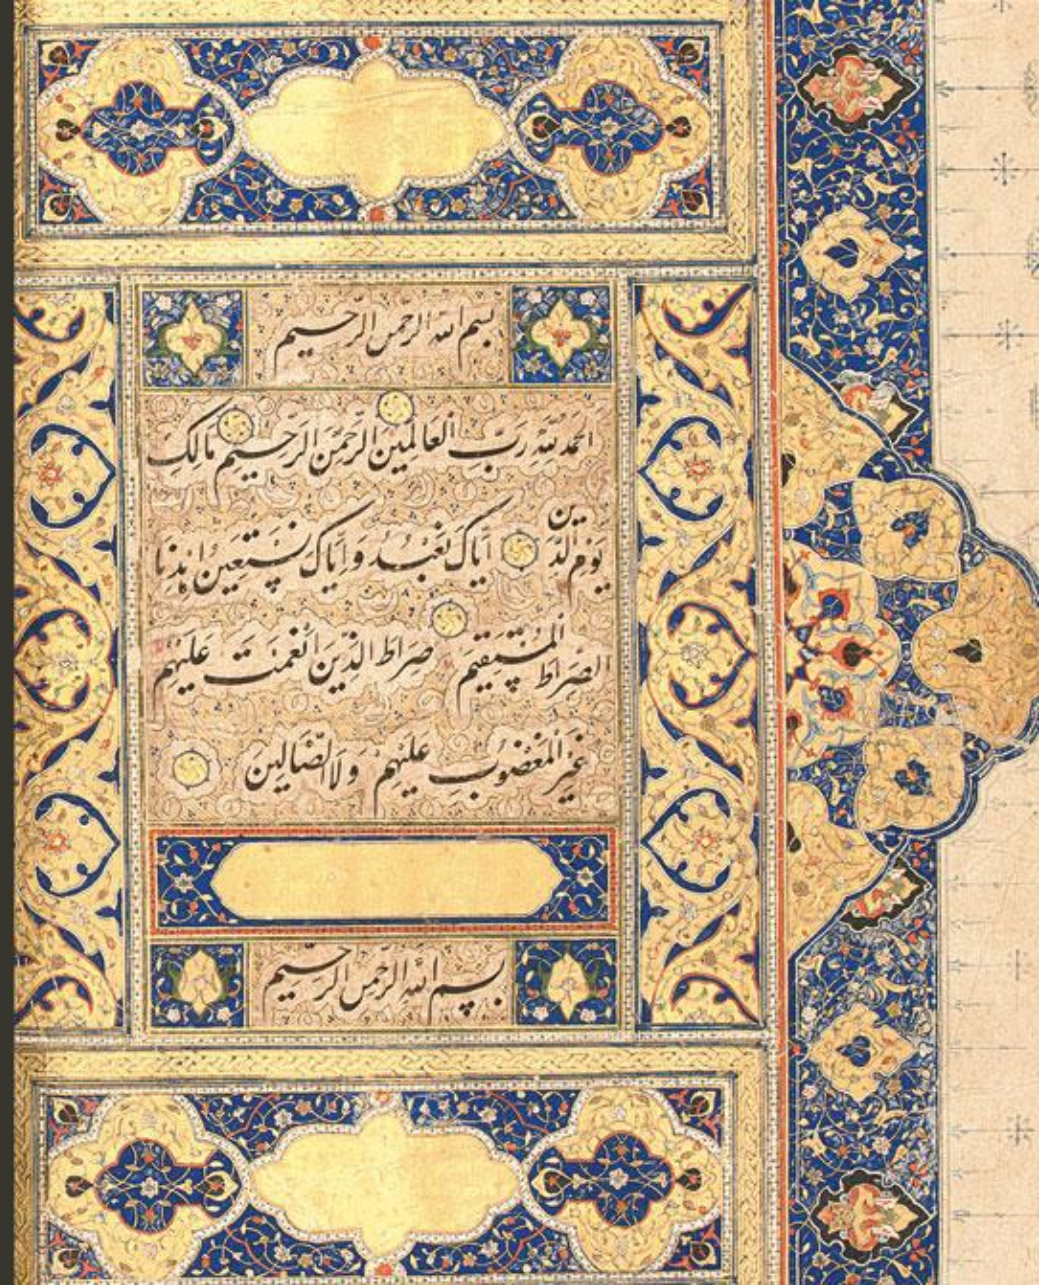 بسم الله الرحمن الرحیم
الحَمدُ لِلّٰهِ رَبِّ العالَمینَ الرَحمٰنِ الرَحیمِ مالِکِ
یَومِ الدّینِ اِیّاکَ نَعبُدُ وَ اِیّاکَ نَستَعینُ اِهدِنَا
الصِراطَ المُستَقیمَ صِراطَ الَّذینَ اَنعَمتَ عَلَیهِم
غَیرِ المَغضوبِ عَلَیهِم وَلَا الضّالّینَ
بسم الله الرحمن الرحیم